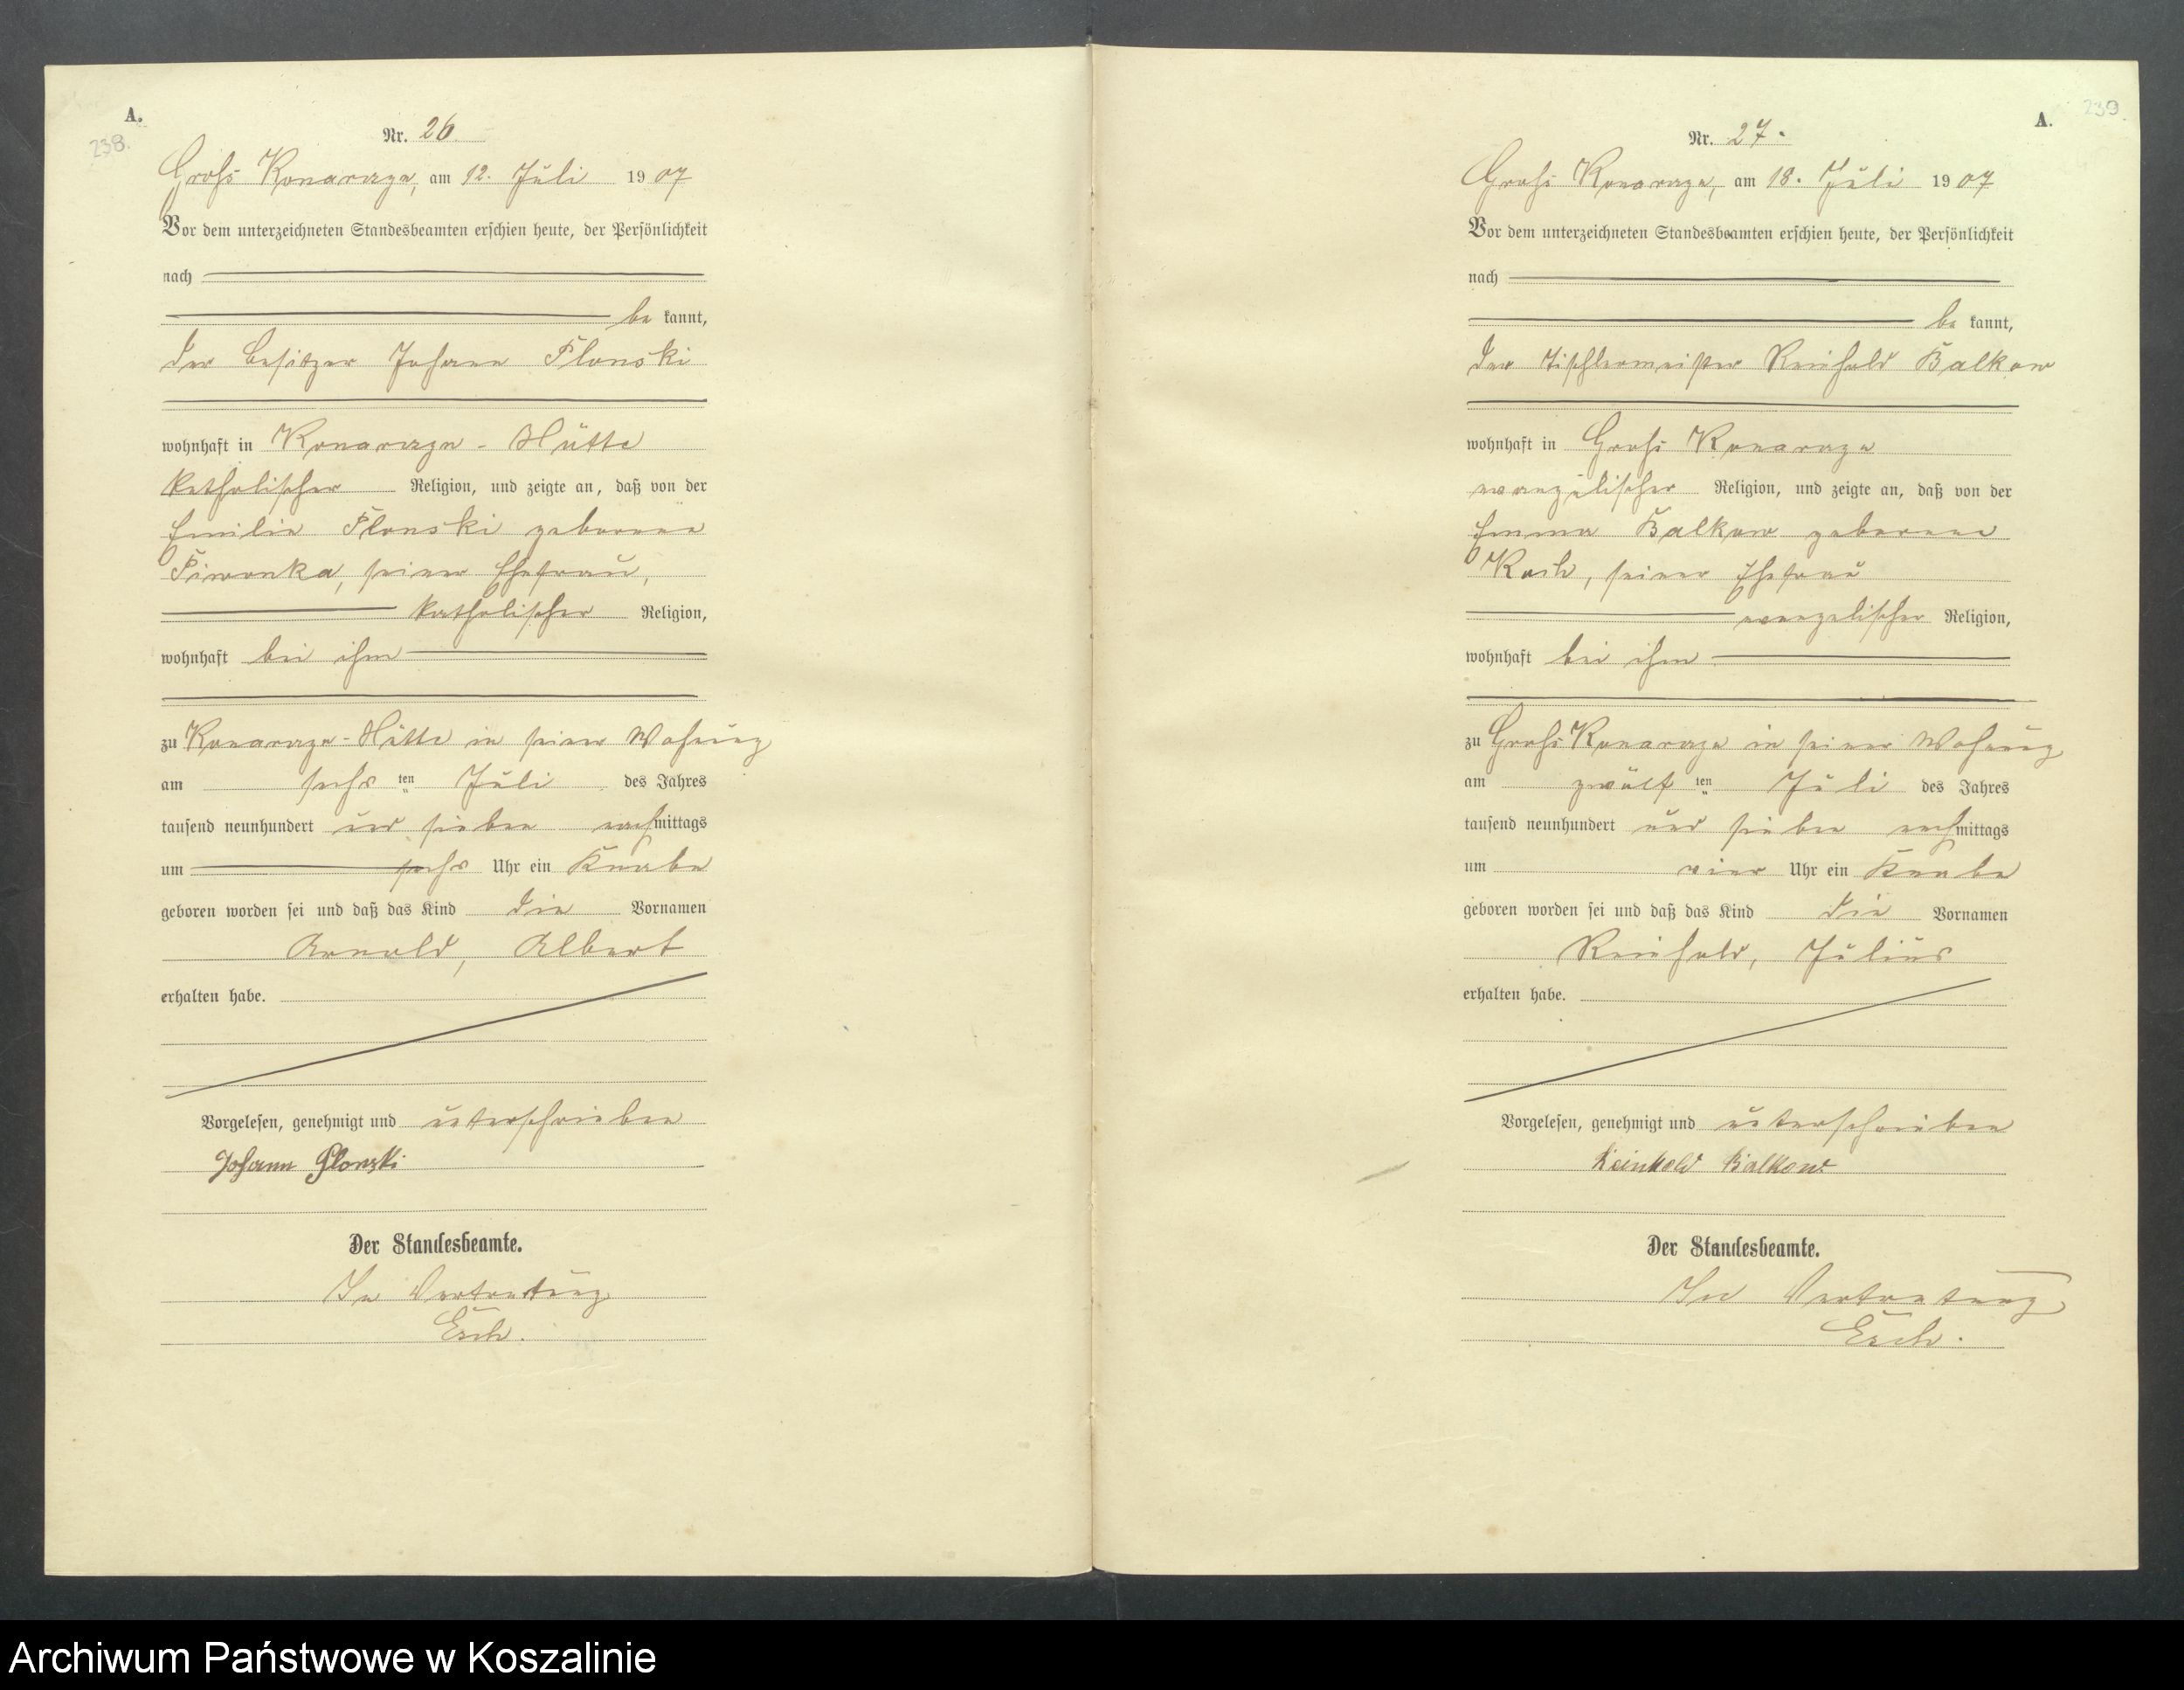 A.
238.
Nr. 26
Groß Konarczyn, am 12. Juli 1907
Vor dem unterzeichneten Standesbeamten erschien heute, der Persönlichkeit
nach
be kannt,
der Besitzer Johann Plonski
wohnhaft in Konarczyn-Hütte
katholischer Religion, und zeigte an, daß von der
Emilie Plonski geborene
Piwonka, seiner Ehefrau,
katholischer Religion,
wohnhaft bei ihm
zu Konarczyn-Hütte in seiner Wohnung
am sechs ten Juli des Jahres
tausend neunhundert und sieben nachmittags
um sechs Uhr ein Knabe
geboren worden sei und daß das Kind die Vornamen
Arnold, Albert
erhalten habe.
Vorgelesen, genehmigt und unterschrieben
Johann Plonski
Der Standesbeamte.
In Vertretung
Esch.
A.
239.
Nr. 27.
Groß Konarczyn, am 18. Juli 1907
Vor dem unterzeichneten Standesbeamten erschien heute, der Persönlichkeit
nach
be kannt,
der Tischlermeister Reinhold Balkow
wohnhaft in Groß Konarczyn
evangelischer Religion, und zeigte an, daß von der
Emma Balkow geborene
Koch, seiner Ehefrau
evangelischer Religion,
wohnhaft bei ihm
zu Groß Konarczyn in seiner Wohnung
am zwölf ten Juli des Jahres
tausend neunhundert und sieben nachmittags
um vier Uhr ein Knabe
geboren worden sei und daß das Kind die Vornamen
Reinhold, Julius
erhalten habe.
Vorgelesen, genehmigt und unterschrieben
Reinhold Balkow.
Der Standesbeamte.
In Vertretung
Esch.
Archiwum Państwowe w Koszalinie